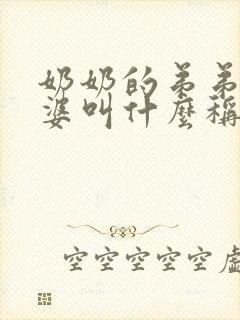 奶奶的弟弟
婆叫什麼稱
空空空空空虛